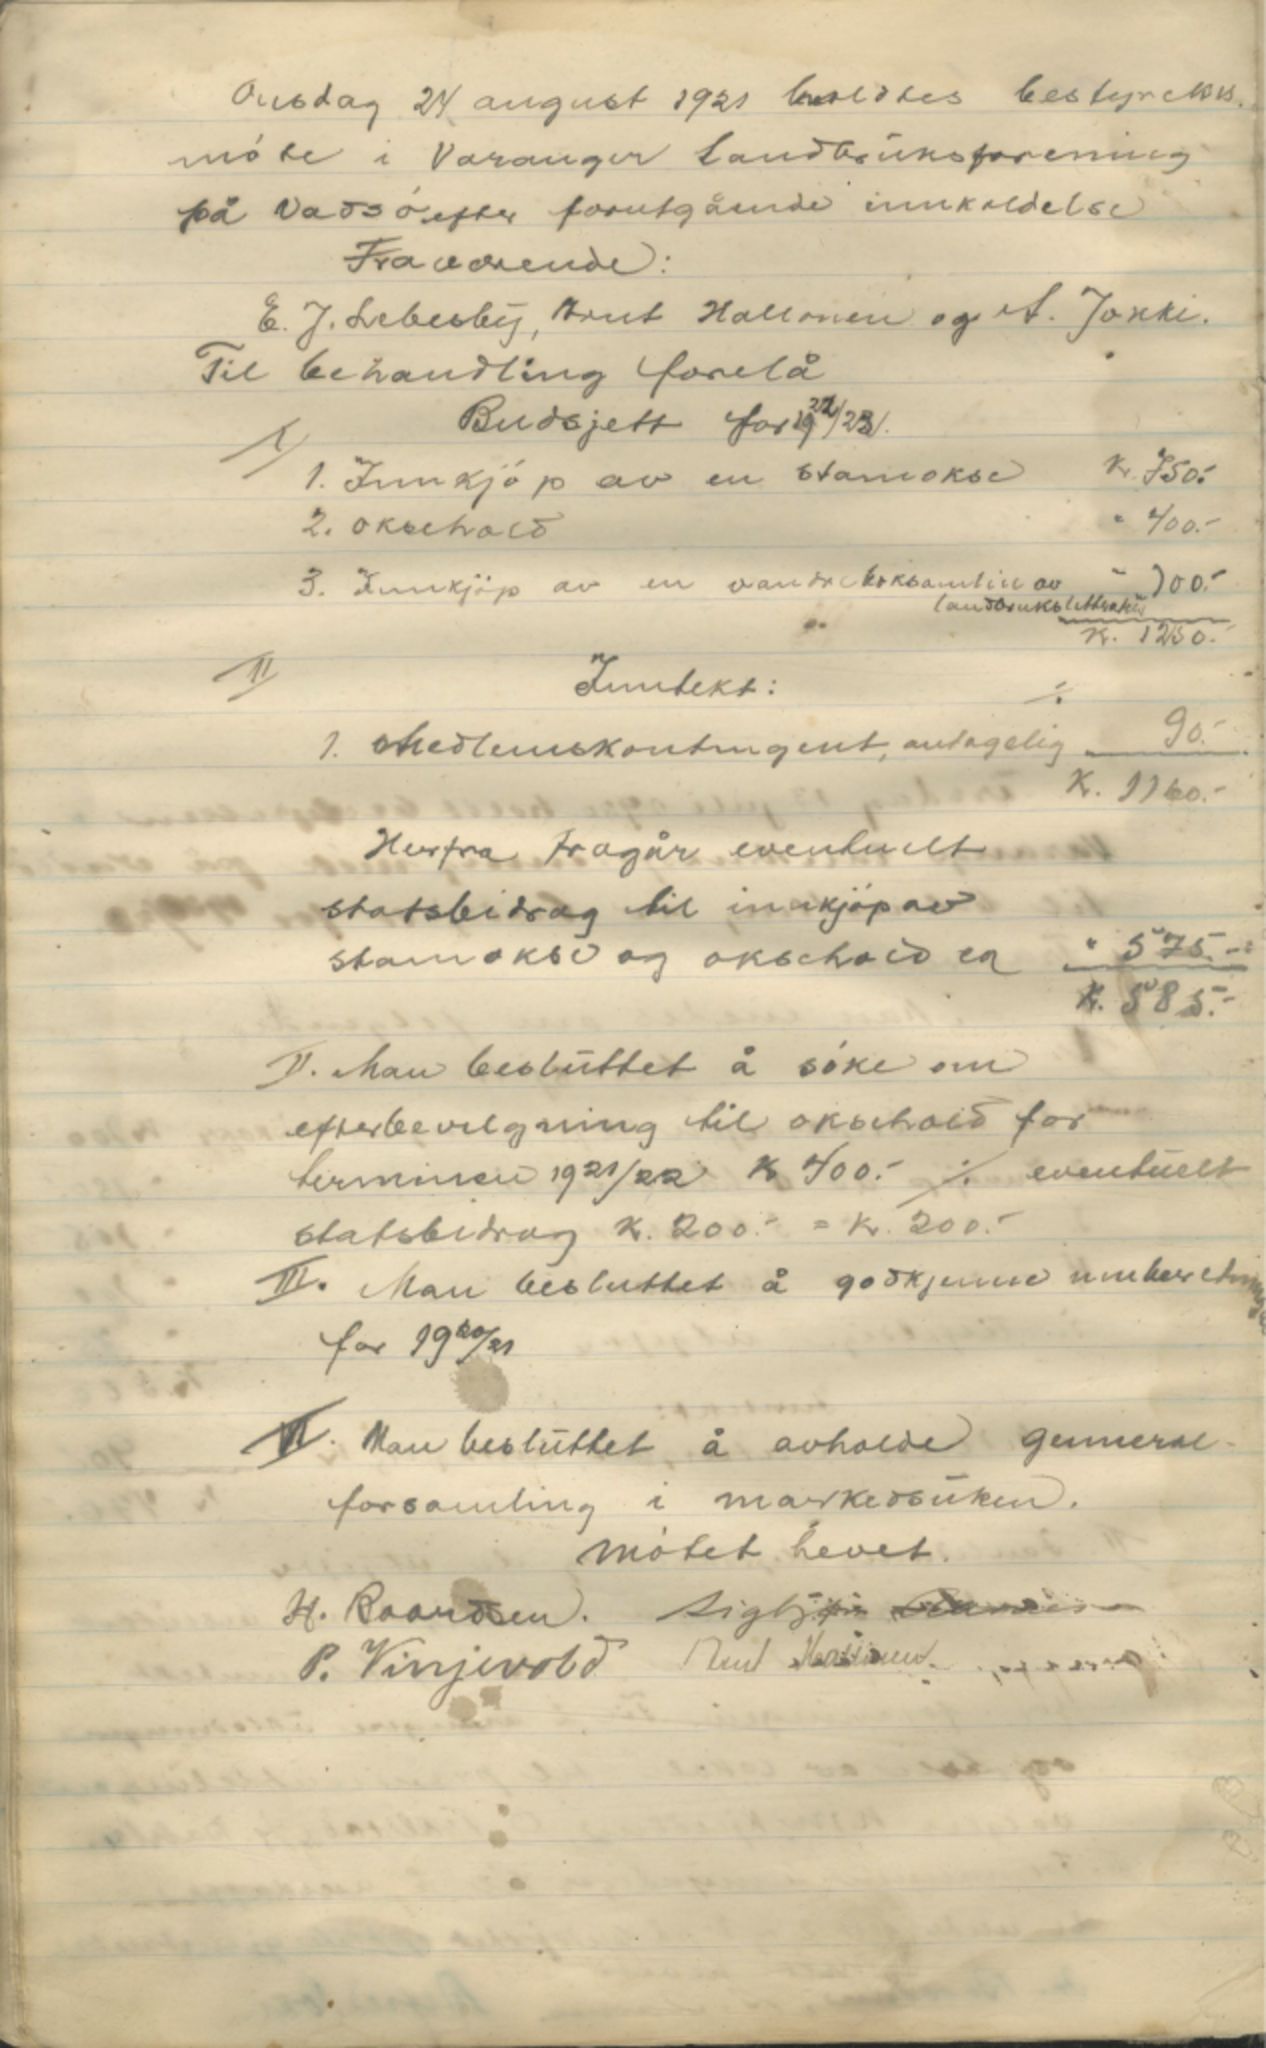 Onsdag 24 august 1921 holdtes bestyrelses
möte i Varanger landbrüksforening
på Vadsö efter forutgående innkaldelse
Fraværende:
E. J. Lebesbÿ, Knut Hallonen og A. Jokki.
Til behandling forelå
Budsjett for 1922/23.
I
1. Innkjöp av en stamokse K. 750.-
2. Oksehold " 400.-
3. Innkjöp av en vandreboksamlin av " 100.-
landbrukslitteratur
K. 1250.-
II Inntekt: ./.
1. Medlemskontingent, antagelig 90.-
K. 1160.-
Herfra fragår eventuelt
statsbidrag til innkjöp av
stamokse og oksehold ca " 575.-
K. 585.-
II. Man besluttet å söke om
efterbevilgning til oksehold for
terminen 1921/22 K 400.- ./. eventüelt
statsbidrag K. 200.- = K. 200.-
III. Man besluttet å godkjenne
for 1920/21
VI. Man beslüttet å avholde genneral-
forsamling i markedsüken.
Mötet hevet.
H. Baardsen. Sigbjörn
P. Vinjevold Knut